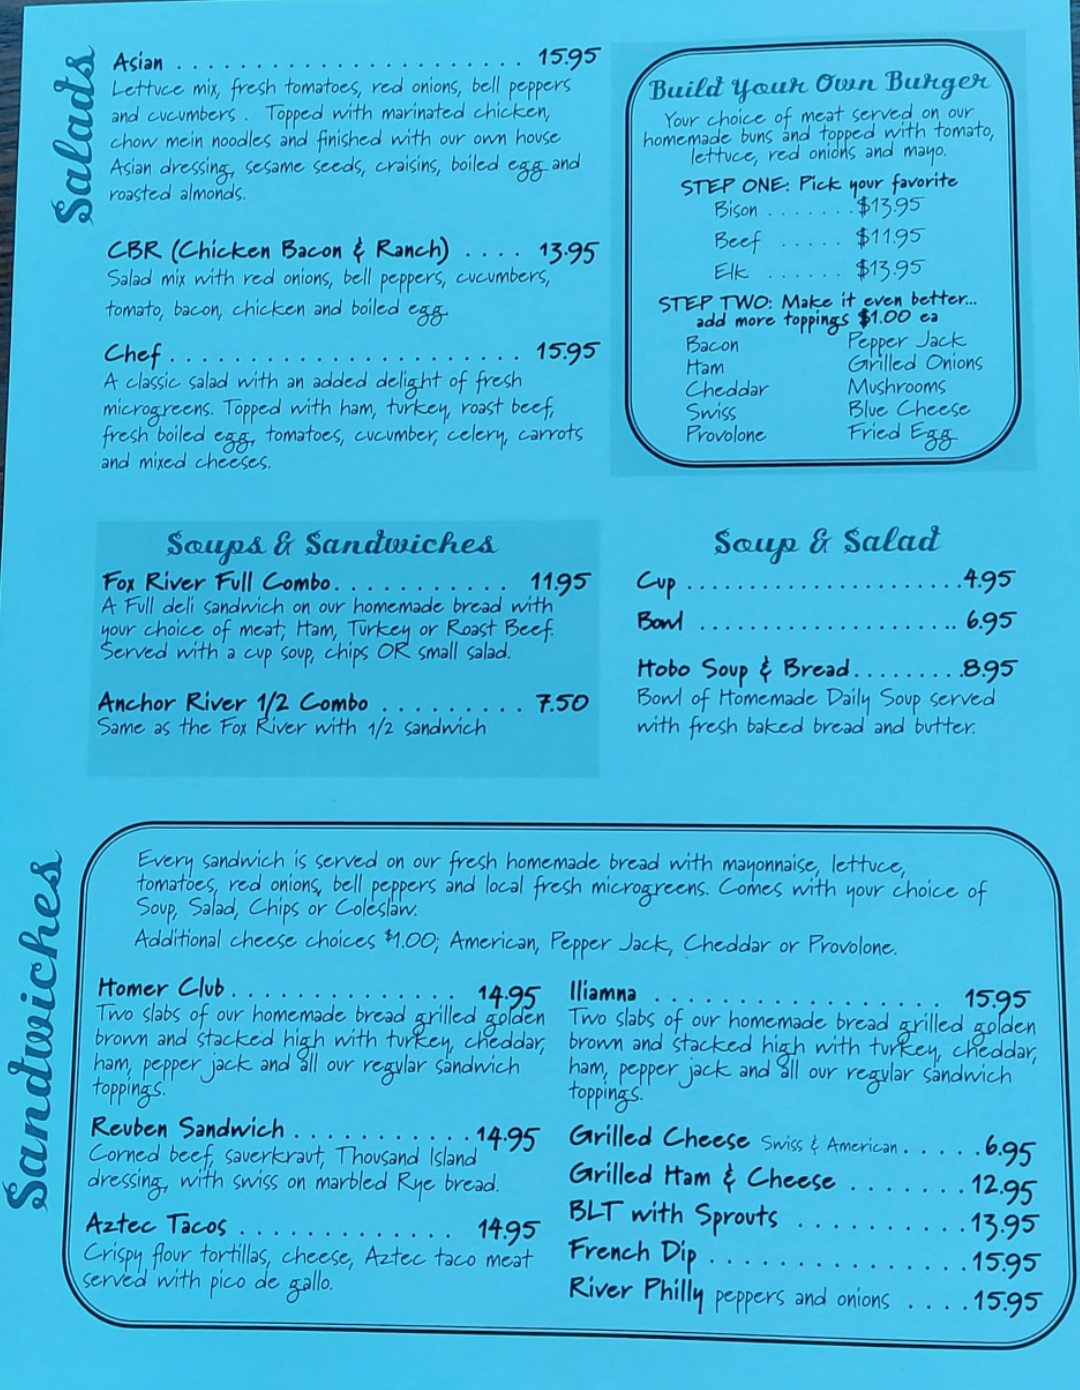 Salads
Asian . . . . . . . . . . . . . . . . . . . . . . . 15.95
Lettuce mix, fresh tomatoes, red onions, bell peppers
and cucumbers . Topped with marinated chicken,
chow mein noodles and finished with our own house
Asian dressing, sesame seeds, craisins, boiled egg and
roasted almonds.
CBR (Chicken Bacon & Ranch) . . . . 13.95
Salad mix with red onions, bell peppers, cucumbers,
tomato, bacon, chicken and boiled egg.
Chef . . . . . . . . . . . . . . . . . . . . . . . 15.95
A classic salad with an added delight of fresh
microgreens. Topped with ham, turkey, roast beef,
fresh boiled egg, tomatoes, cucumber, celery, carrots
and mixed cheeses.
Build Your Own Burger
Your choice of meat served on our
homemade buns and topped with tomato,
lettuce, red onions and mayo.
STEP ONE: Pick your favorite
Bison . . . . . . . $13.95
Beef . . . . . $11.95
Elk . . . . . . $13.95
STEP TWO: Make it even better...
add more toppings $1.00 ea
Bacon
Ham
Cheddar
Swiss
Provolone
Pepper Jack
Grilled Onions
Mushrooms
Blue Cheese
Fried Egg
Soups & Sandwiches
Fox River Full Combo. . . . . . . . . . . . 11.95
A Full deli sandwich on our homemade bread with
your choice of meat; Ham, Turkey or Roast Beef.
Served with a cup soup, chips OR small salad.
Anchor River 1/2 Combo . . . . . . . . . 7.50
Same as the Fox River with 1/2 sandwich
Soup & Salad
Cup . . . . . . . . . . . . . . . . . . . . . .4.95
Bowl . . . . . . . . . . . . . . . . . . . . .. 6.95
Hobo Soup & Bread. . . . . . . . .8.95
Bowl of Homemade Daily Soup served
with fresh baked bread and butter.
Sandwiches
Every sandwich is served on our fresh homemade bread with mayonnaise, lettuce,
tomatoes, red onions, bell peppers and local fresh microgreens. Comes with your choice of
Soup, Salad, Chips or Coleslaw.
Additional cheese choices $1.00; American, Pepper Jack, Cheddar or Provolone.
Homer Club. . . . . . . . . . . . . . 14.95
Two slabs of our homemade bread grilled golden
brown and stacked high with turkey, cheddar,
ham, pepper jack and all our regular sandwich
toppings.
Reuben Sandwich . . . . . . . . . . . 14.95
Corned beef, sauerkraut, Thousand Island
dressing, with swiss on marbled Rye bread.
Aztec Tacos . . . . . . . . . . . . . 14.95
Crispy flour tortillas, cheese, Aztec taco meat
served with pico de gallo.
Iliamna . . . . . . . . . . . . . . . . . . 15.95
Two slabs of our homemade bread grilled golden
brown and stacked high with turkey, cheddar,
ham, pepper jack and all our regular sandwich
toppings.
Grilled Cheese Swiss & American . . . . . .6.95
Grilled Ham & Cheese . . . . . . . 12.95
BLT with Sprouts . . . . . . . . . . .13.95
French Dip . . . . . . . . . . . . . . . . .15.95
River Philly peppers and onions . . . .15.95